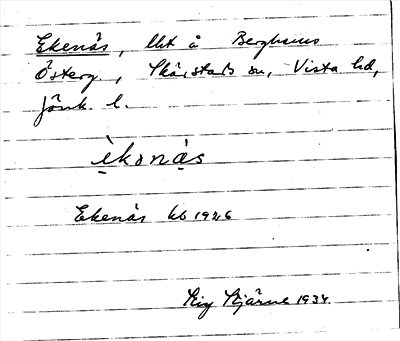 Ekenäs, lht å Berghems
Österg., Skärstads sn, Vista hd,
Jönk. l.
èkənä̀s
Ekenäs kb 1926
Stig Bjärne 1934